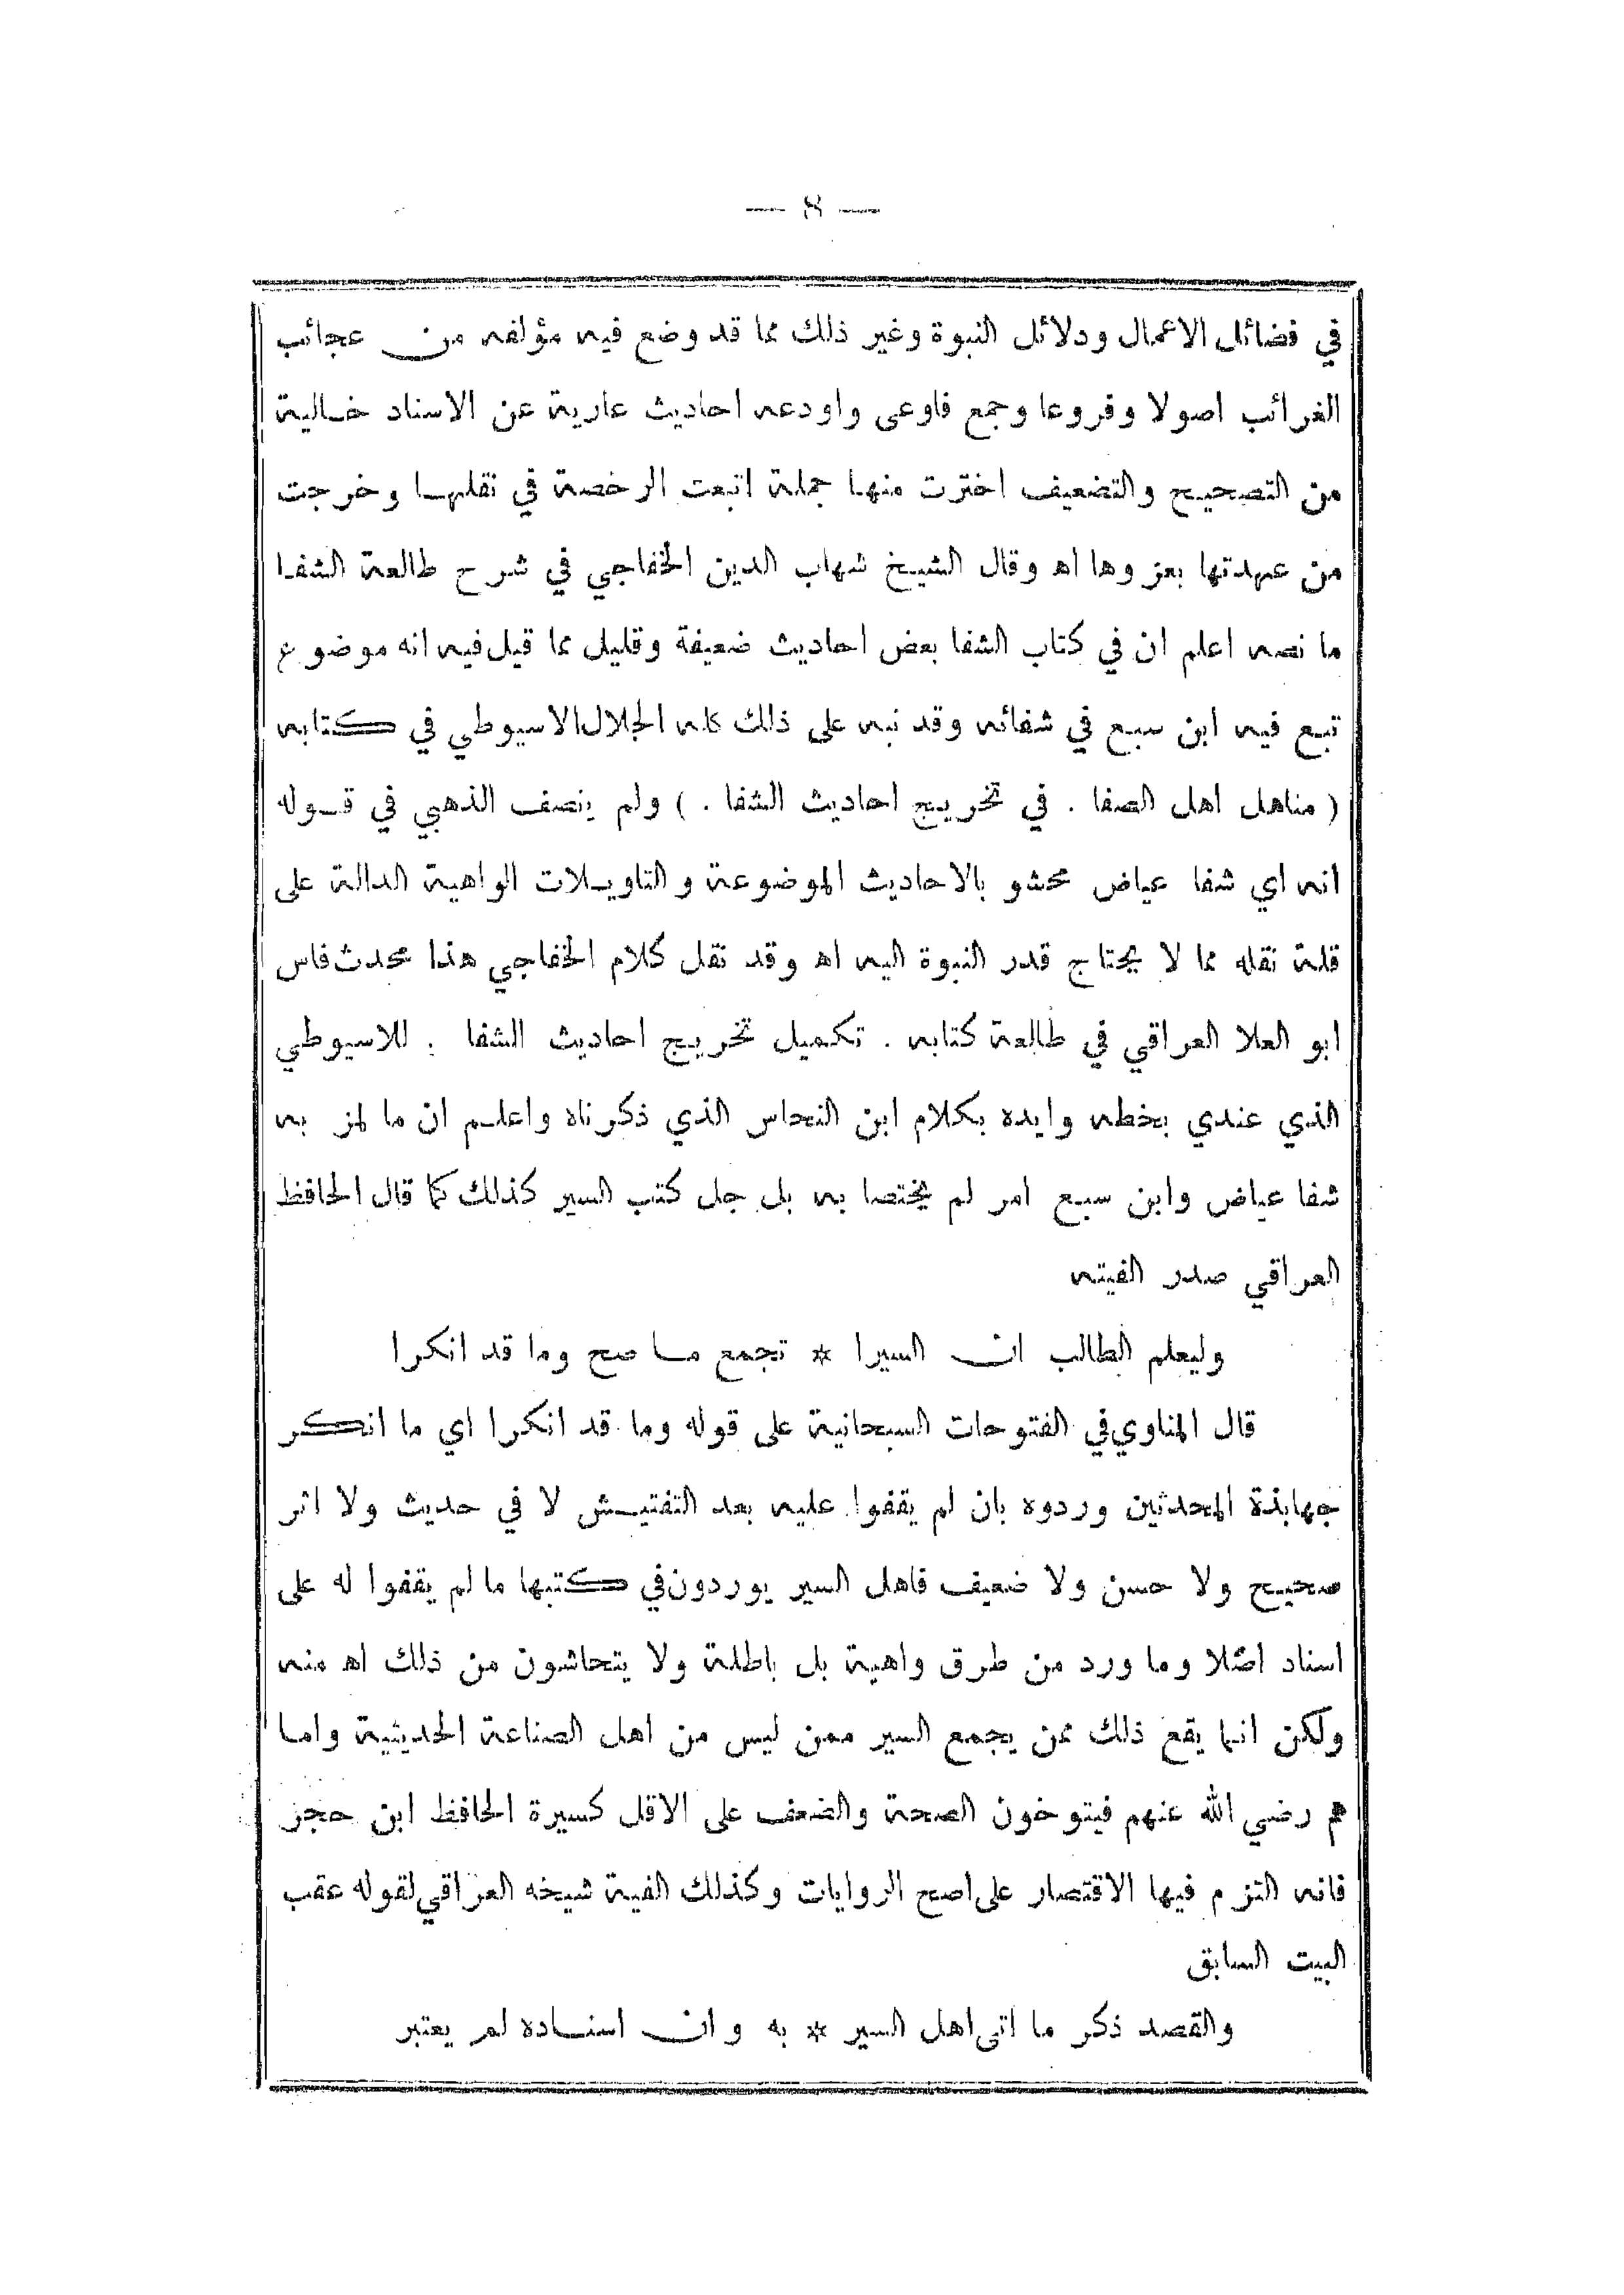 — ٨ —
في فضائل الاعمال ودلائل النبوة وغير ذلك مما قد وضع فيه مؤلفه من عجائب
الغرائب اصولا وفروعا وجمع فاوعى واودعه احاديث عارية عن الاسناد خالية
من التصحيح والتضعيف اخترت منها جملة اتبعت الرخصة في نقلها وخرجت
من عهدتها بعزوها اه وقال الشيخ شهاب الدين الخفاجي في شرح طالعة الشفا
ما نصه اعلم ان في كتاب الشفا بعض احاديث ضعيفة وقليل مما قيل فيه انه موضوع
تبع فيه ابن سبع في شفائه وقد نبه على ذلك كله الجلال الاسيوطي في كتابه
( مناهل اهل الصفا . في تخريج احاديث الشفا . ) ولم ينصف الذهبي في قوله
انه اي شفا عياض محشو بالاحاديث الموضوعة والتاويلات الواهية الدالة على
قلة نقله مما لا يحتاج قدر النبوة اليه اه وقد نقل كلام الخفاجي هذا محدث فاس
ابو العلا العراقي في طالعة كتابه . تكميل تخريج احاديث الشفا . للاسيوطي
الذي عندي بخطه وايده بكلام ابن النحاس الذي ذكرناه واعلم ان ما لمز به
شفا عياض وابن سبع امر لم يختصا به بل جل كتب السير كذلك كما قال الحافظ
العراقي صدر الفيته
وليعلم الطالب ان السيرا * تجمع ما صح وما قد انكرا
قال المناوي في الفتوحات السبحانية على قوله وما قد انكرا اي ما انكر
جهابذة المحدثين وردوه بان لم يقفوا عليه بعد التفتيش لا في حديث ولا اثر
صحيح ولا حسن ولا ضعيف فاهل السير يوردون في كتبها ما لم يقفوا له على
اسناد اصلا وما ورد من طرق واهية بل باطلة ولا يتحاشون من ذلك اه منه
ولكن انما يقع ذلك ممن يجمع السير ممن ليس من اهل الصناعة الحديثية واما
هم رضي الله عنهم فيتوخون الصحة والضعف على الاقل كسيرة الحافظ ابن حجر
فانه التزم فيها الاقتصار على اصح الروايات وكذلك الفية شيخه العراقي لقوله عقب
البيت السابق
والقصد ذكر ما اتى اهل السير * به وان اسناده لم يعتبر